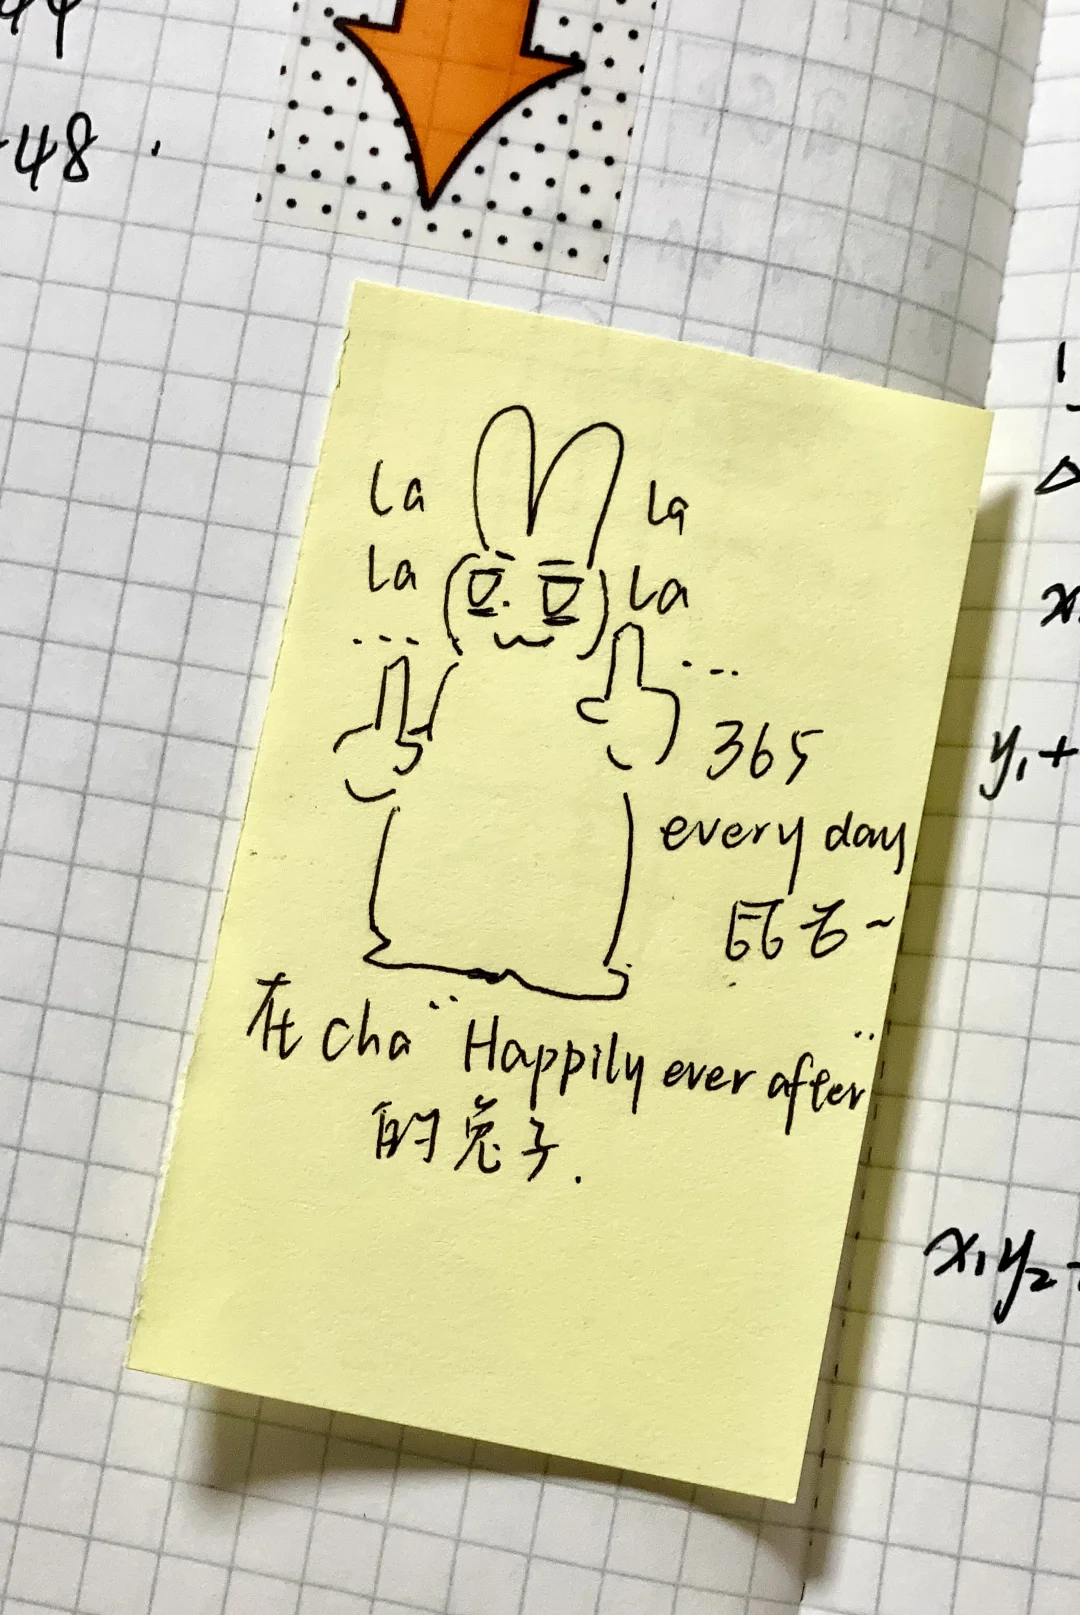 48
la la
la la
... ...
365
every day
在 cha "Happily ever after"
的兔子.
y₁+
x₁y₂